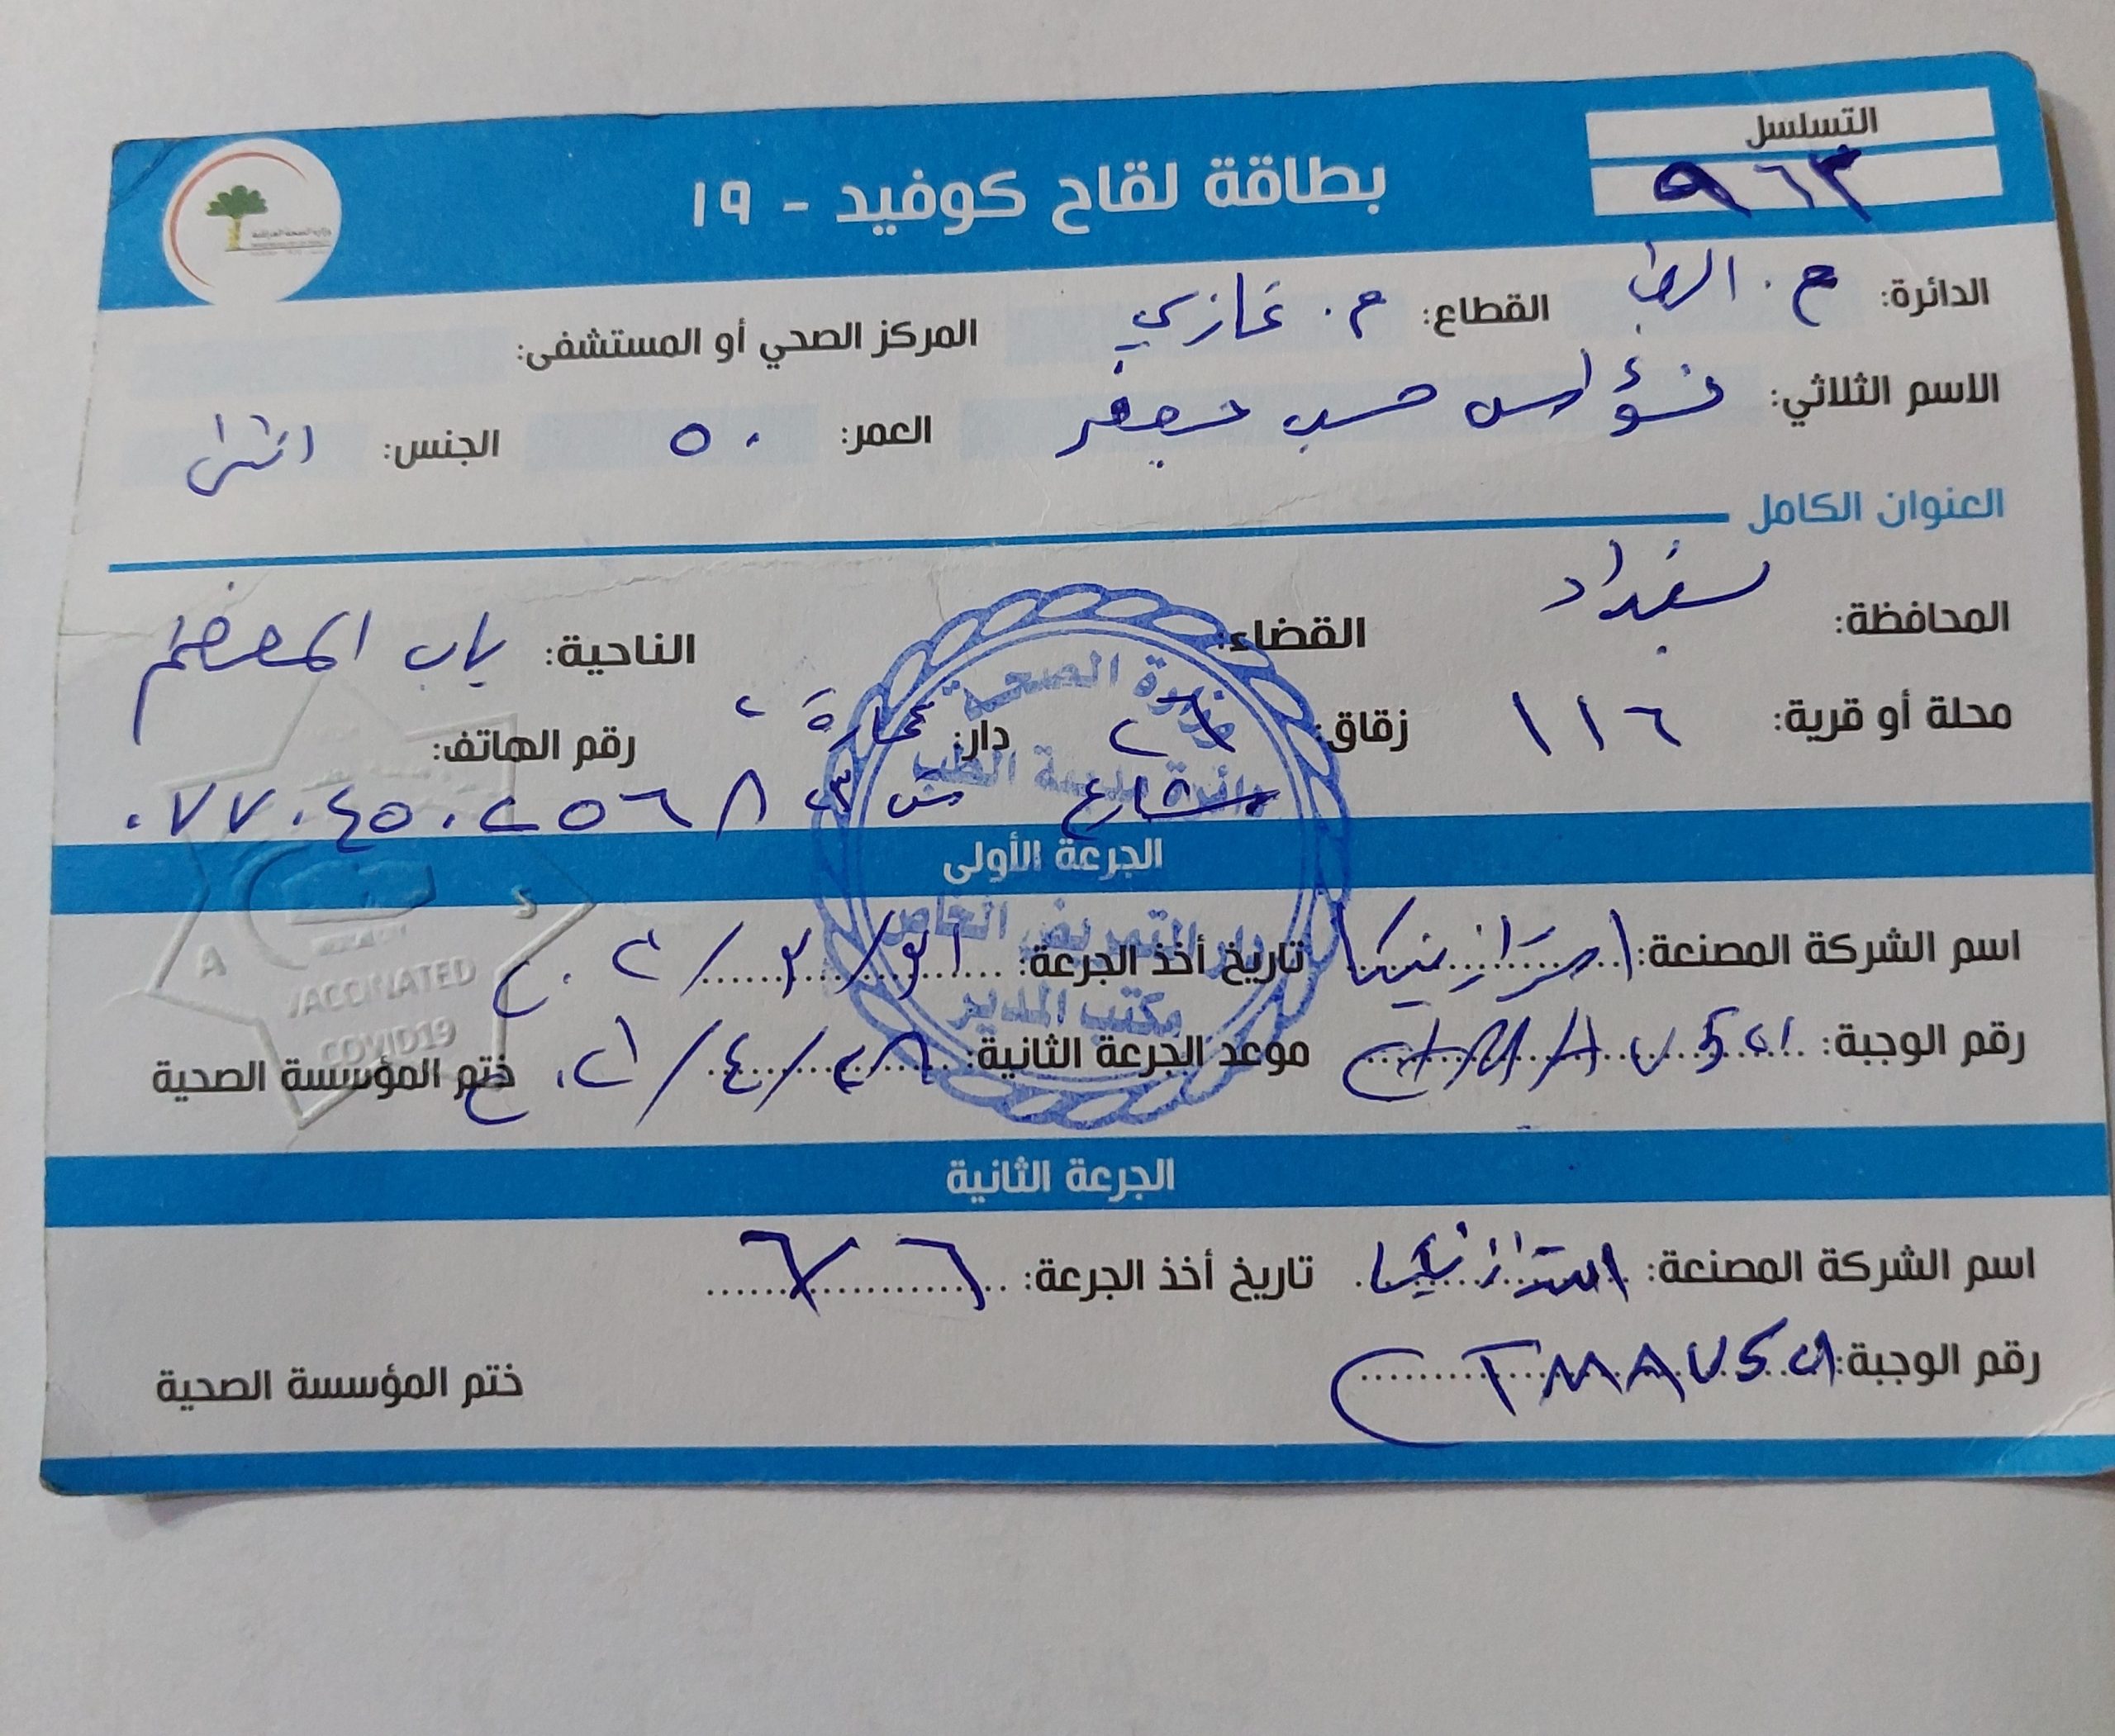 التسلسل
٩٦٣
بطاقة لقاح كوفيد - ١٩
الدائرة: القطاع: م. غازي المركز الصحي أو المستشفى:
الاسم الثلاثي: جعفر العمر: ٥٠ الجنس:
العنوان الكامل
المحافظة: بغداد القضاء: الناحية: باب المعظم
محلة أو قرية: ١١٦ زقاق: ٢٦ دار: عمارة ٢ رقم الهاتف:
شارع ٠٧٧٠٤٥٠٢٥٦٨
وزارة الصحة
دائرة مدينة الطب
دار التمريض الخاص
مكتب المدير
الجرعة الأولى
اسم الشركة المصنعة: استرازنيكا تاريخ أخذ الجرعة:
رقم الوجبة: موعد الجرعة الثانية: ٢٨/٤/ ختم المؤسسة الصحية
VACCINATED
COVID19
الجرعة الثانية
اسم الشركة المصنعة: استرازنيكا تاريخ أخذ الجرعة:
رقم الوجبة: CTMAV501
ختم المؤسسة الصحية